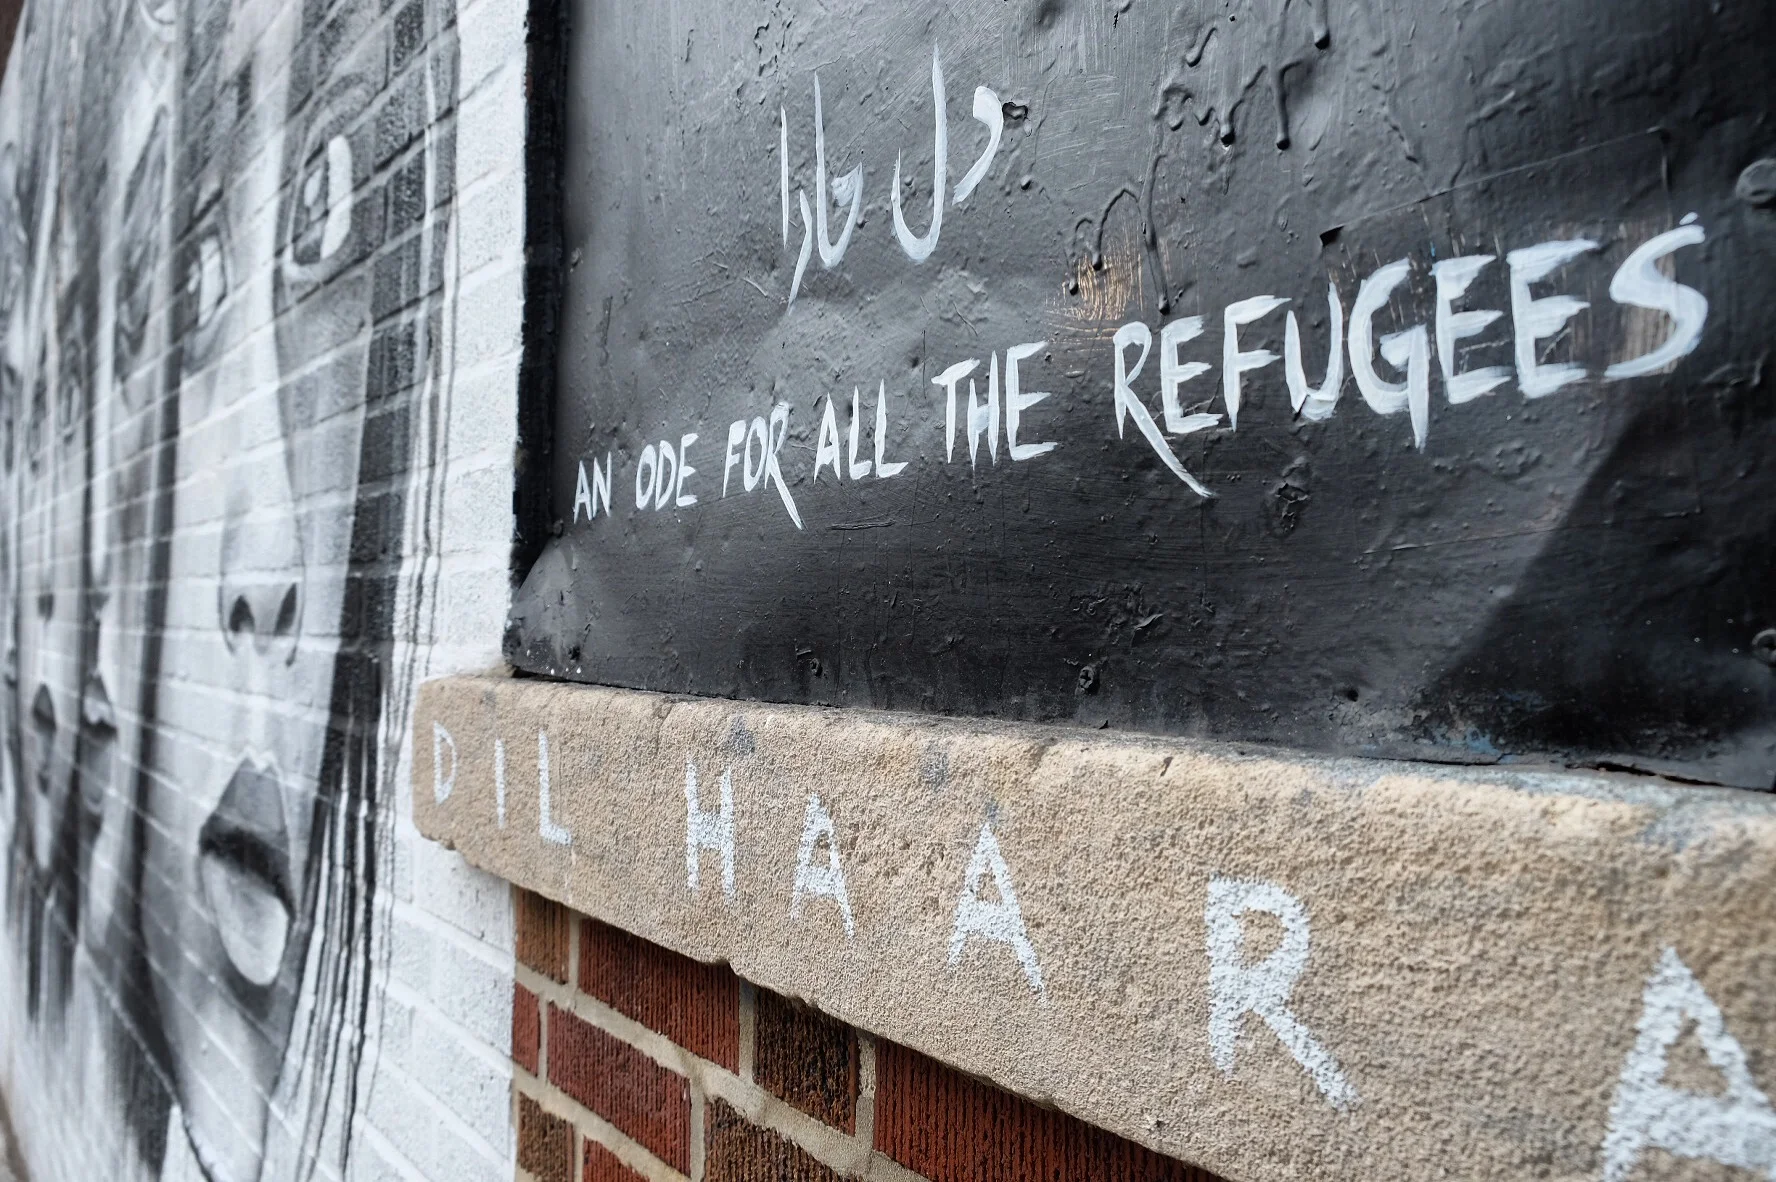 دل ہارا
AN ODE FOR ALL THE REFUGEES
DIL HAARA